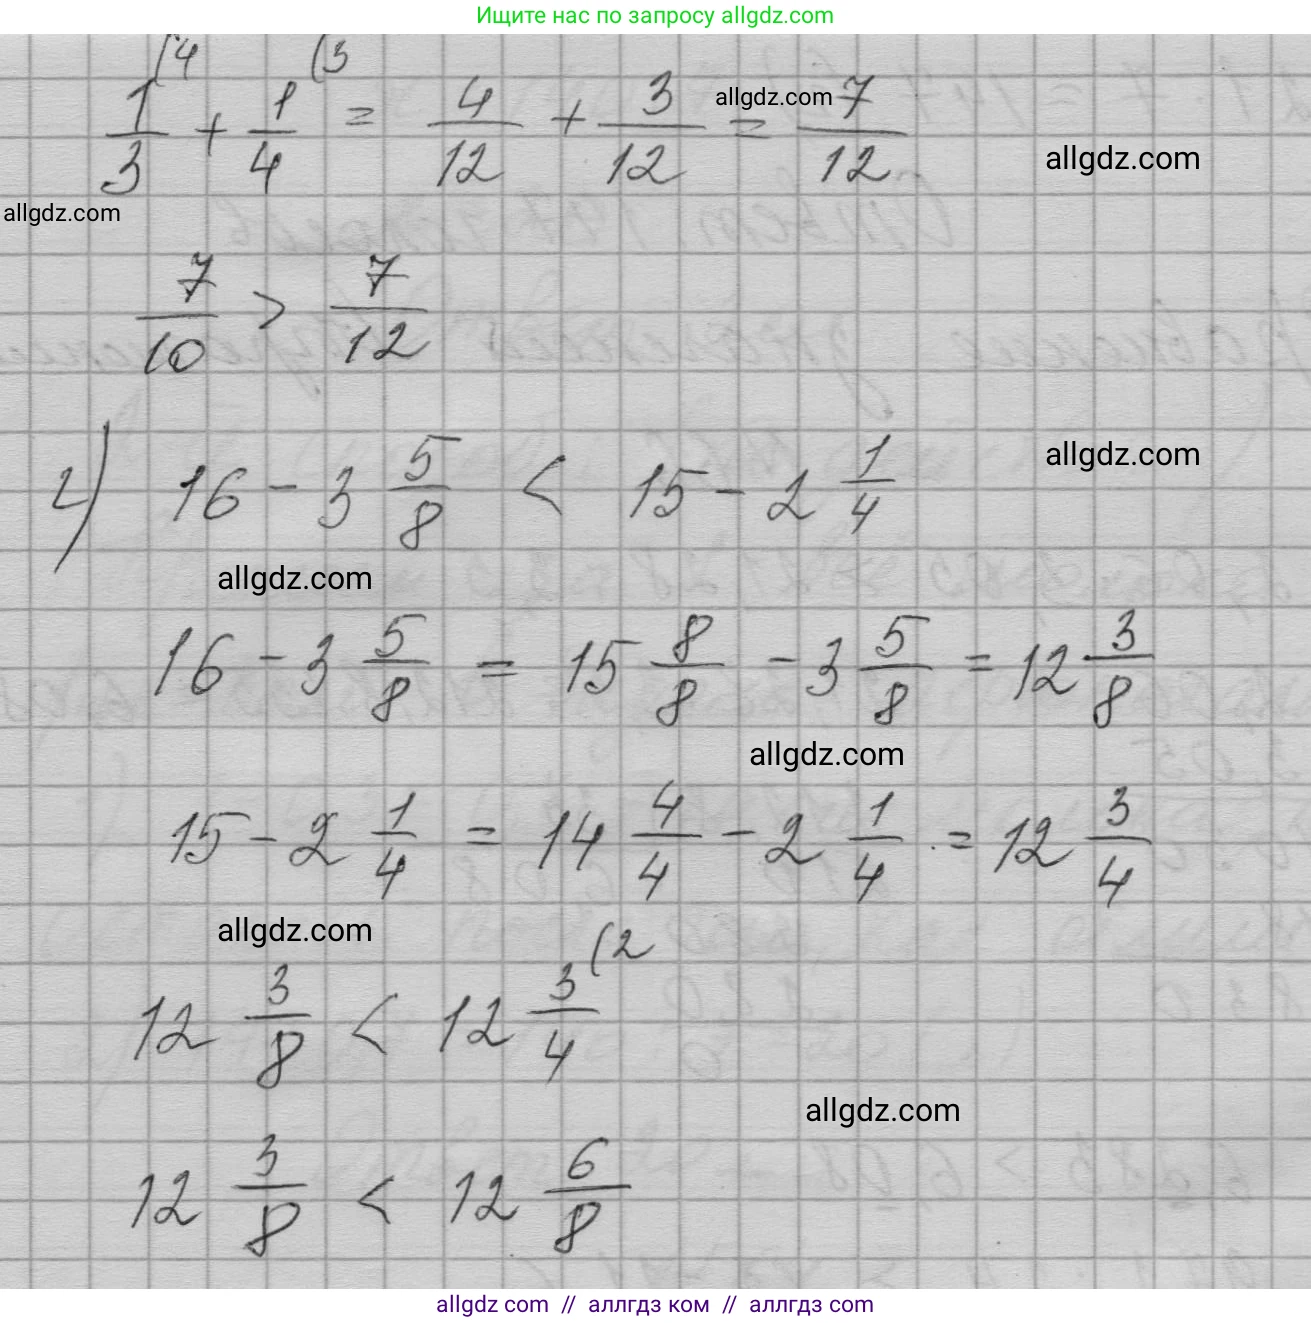 Ищите нас по запросу allgdz.com
1/3 (4 + 1/4 (3 = 4/12 + 3/12 = 7/12
allgdz.com
allgdz.com
allgdz.com
7/10 > 7/12
2) 16 - 3 5/8 < 15 - 2 1/4
allgdz.com
allgdz.com
16 - 3 5/8 = 15 8/8 - 3 5/8 = 12 3/8
allgdz.com
15 - 2 1/4 = 14 4/4 - 2 1/4 = 12 3/4
allgdz.com
12 3/8 < 12 3/4 (2
allgdz.com
12 3/8 < 12 6/8
allgdz.com // аллгдз ком // аллгдз.com